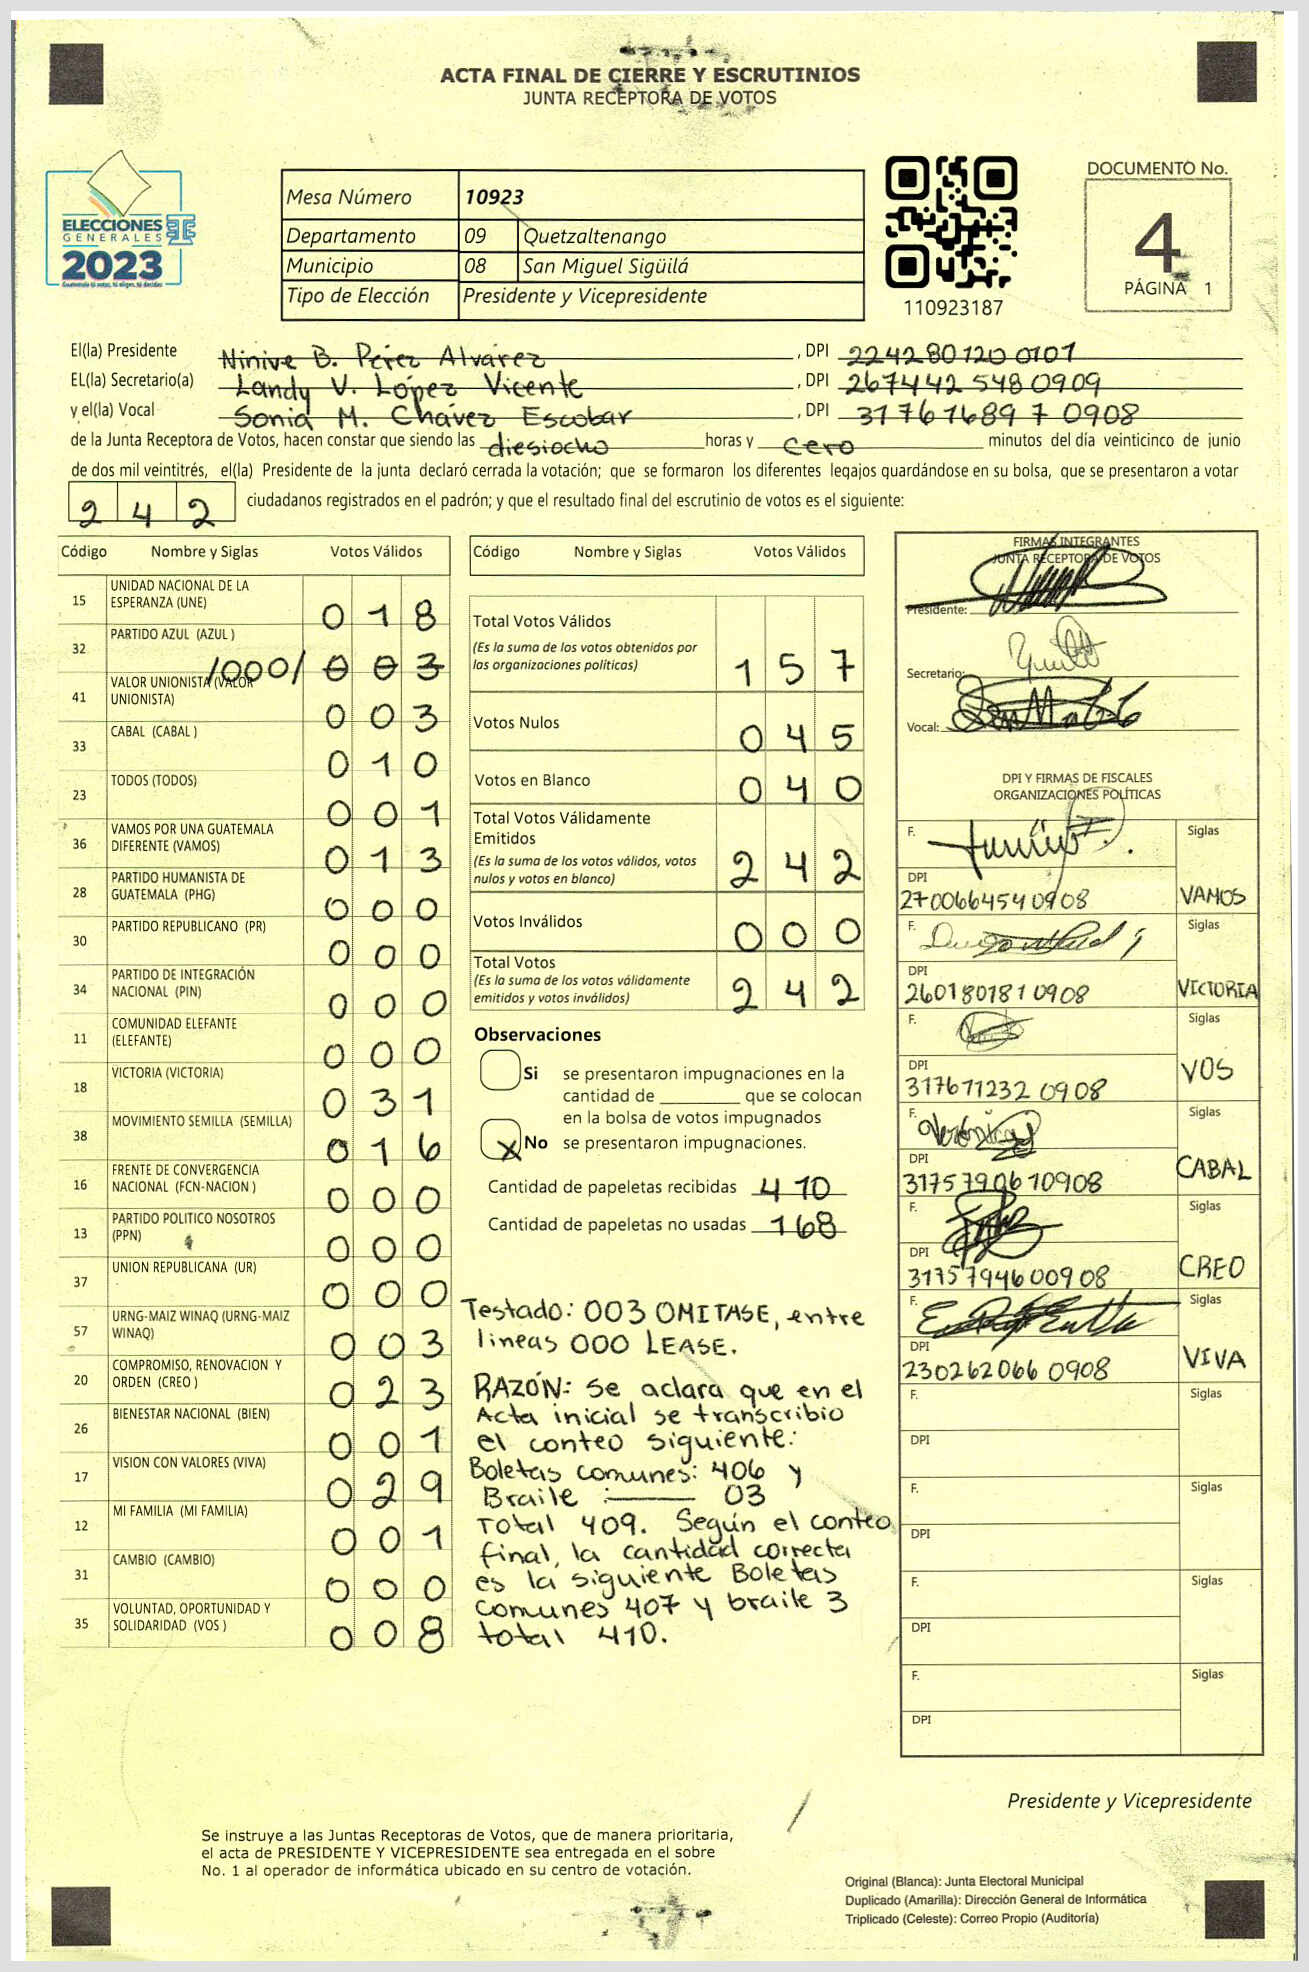 ACTA FINAL DE CIERRE Y ESCRUTINIOS
JUNTA RECEPTORA DE VOTOS
ELECCIONES
GENERALES
2023
Guatemala tú votas, tú eliges, tú decides
Mesa Número 10923
Departamento 09 Quetzaltenango
Municipio 08 San Miguel Sigüilá
Tipo de Elección Presidente y Vicepresidente
110923187
DOCUMENTO No.
4
PÁGINA 1
El(la) Presidente Ninive B. Pérez Alvarez , DPI 2242801200101
EL(la) Secretario(a) Landy V. López Vicente , DPI 267442 548 0909
y el(la) Vocal Sonia M. Chávez Escobar , DPI 31761689 7 0908
de la Junta Receptora de Votos, hacen constar que siendo las diesiocho horas y cero minutos del día veinticinco de junio
de dos mil veintitrés, el(la) Presidente de la junta declaró cerrada la votación; que se formaron los diferentes legajos guardándose en su bolsa, que se presentaron a votar
242 ciudadanos registrados en el padrón; y que el resultado final del escrutinio de votos es el siguiente:
Código Nombre y Siglas Votos Válidos
15 UNIDAD NACIONAL DE LA ESPERANZA (UNE) 018
32 PARTIDO AZUL (AZUL ) /000/ 003
41 VALOR UNIONISTA (VALOR UNIONISTA) 003
33 CABAL (CABAL ) 010
23 TODOS (TODOS) 001
36 VAMOS POR UNA GUATEMALA DIFERENTE (VAMOS) 013
28 PARTIDO HUMANISTA DE GUATEMALA (PHG) 000
30 PARTIDO REPUBLICANO (PR) 000
34 PARTIDO DE INTEGRACIÓN NACIONAL (PIN) 000
11 COMUNIDAD ELEFANTE (ELEFANTE) 000
18 VICTORIA (VICTORIA) 031
38 MOVIMIENTO SEMILLA (SEMILLA) 016
16 FRENTE DE CONVERGENCIA NACIONAL (FCN-NACION ) 000
13 PARTIDO POLITICO NOSOTROS (PPN) 000
37 UNION REPUBLICANA (UR) 000
57 URNG-MAIZ WINAQ (URNG-MAIZ WINAQ) 003
20 COMPROMISO, RENOVACION Y ORDEN (CREO ) 023
26 BIENESTAR NACIONAL (BIEN) 001
17 VISION CON VALORES (VIVA) 029
12 MI FAMILIA (MI FAMILIA) 001
31 CAMBIO (CAMBIO) 000
35 VOLUNTAD, OPORTUNIDAD Y SOLIDARIDAD (VOS ) 008
Código Nombre y Siglas Votos Válidos
Total Votos Válidos
(Es la suma de los votos obtenidos por
las organizaciones políticas) 157
Votos Nulos 045
Votos en Blanco 040
Total Votos Válidamente
Emitidos
(Es la suma de los votos válidos, votos
nulos y votos en blanco) 242
Votos Inválidos 000
Total Votos
(Es la suma de los votos válidamente
emitidos y votos inválidos) 242
Observaciones
Si se presentaron impugnaciones en la
cantidad de ________ que se colocan
en la bolsa de votos impugnados
X No se presentaron impugnaciones.
Cantidad de papeletas recibidas 410
Cantidad de papeletas no usadas 168
Testado: 003 OMITASE, entre
lineas 000 LEASE.
RAZÓN: Se aclara que en el
Acta inicial se transcribio
el conteo siguiente:
Boletas comunes: 406 y
Braile : 03
Total 409. Según el conteo
final, la cantidad correcta
es la siguiente Boletas
comunes 407 y braile 3
total 410.
FIRMAS INTEGRANTES
JUNTA RECEPTORA DE VOTOS
Presidente:
Secretario:
Vocal:
DPI Y FIRMAS DE FISCALES
ORGANIZACIONES POLÍTICAS
F. Siglas
DPI
2700664540908 VAMOS
F. Siglas
DPI
2601801810908 VICTORIA
F. Siglas
DPI
317671232 0908 VOS
F. Siglas
DPI
3175790610908 CABAL
F. Siglas
DPI
3175794600908 CREO
F. Siglas
DPI
230262066 0908 VIVA
F. Siglas
DPI
F. Siglas
DPI
F. Siglas
DPI
F. Siglas
DPI
Presidente y Vicepresidente
Se instruye a las Juntas Receptoras de Votos, que de manera prioritaria,
el acta de PRESIDENTE Y VICEPRESIDENTE sea entregada en el sobre
No. 1 al operador de informática ubicado en su centro de votación.
Original (Blanca): Junta Electoral Municipal
Duplicado (Amarilla): Dirección General de Informática
Triplicado (Celeste): Correo Propio (Auditoría)